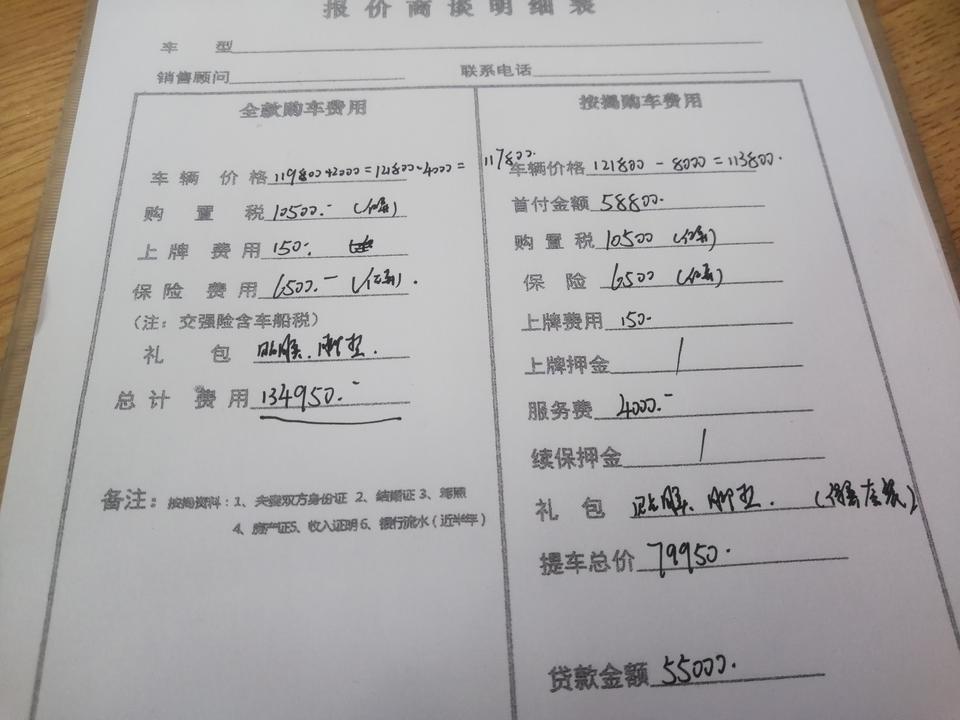 报价商谈明细表
车 型
销售顾问 联系电话
全款购车费用
车辆 价格 119800+2000=121800-4000= 117800.
购 置 税 10500.-
上牌 费用 150.
保险 费用 6500.-
(注：交强险含车船税)
礼 包 贴膜.脚垫.
总计 费用 134950.-
备注：按揭资料：1、夫妻双方身份证 2、结婚证 3、驾照
4、房产证5、收入证明 6、银行流水（近半年）
按揭购车费用
车辆价格 121800-8000=113800.
首付金额 58800.
购 置 税 10500
保 险 6500
上牌费用 150.
上牌押金 /
服务费 4000.-
续保押金 /
礼 包 贴膜.脚垫.
提车总价 79950.
贷款金额 55000.